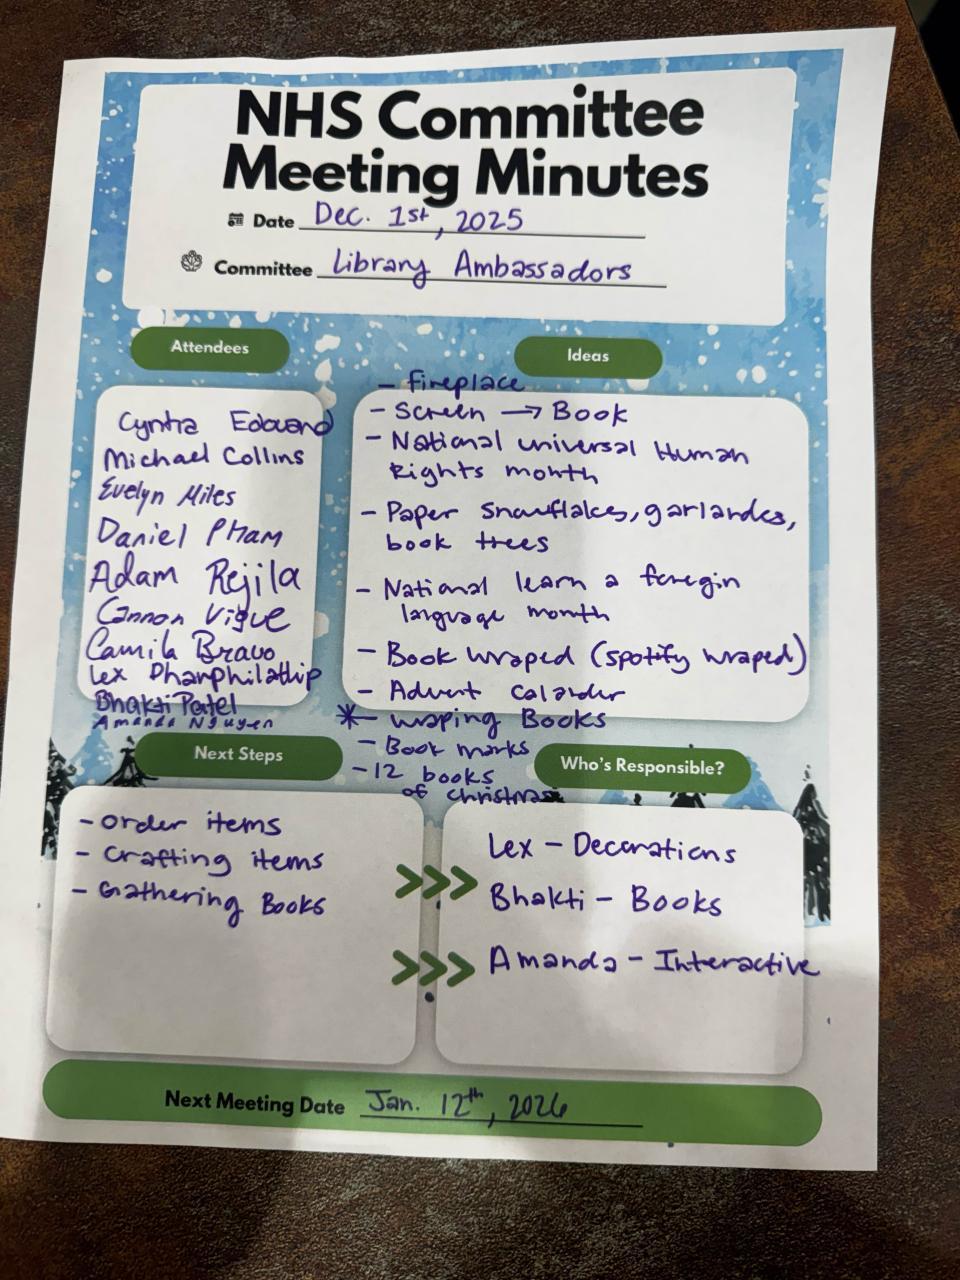 NHS Committee
Meeting Minutes
Date Dec. 1st, 2025
Committee Library Ambassadors
Attendees
Cyntra Edouard
Michael Collins
Evelyn Miles
Daniel Pham
Adam Rejila
Cannon Vigue
Camila Bravo
Lex Dhanphilathip
Bhakti Patel
Amanda Nguyen
Ideas
- fireplace
- Screen → Book
- National universal Human
Rights month
- Paper snowflakes, garlandes,
book trees
- National learn a foregin
language month
- Book wraped (spotify wraped)
- Advent calander
*- wraping Books
- Book marks
- 12 books
of christmas
Next Steps
- order items
- crafting items
- Gathering Books
Who's Responsible?
Lex - Decorations
Bhakti - Books
Amanda - Interactive
Next Meeting Date Jan. 12th, 2026